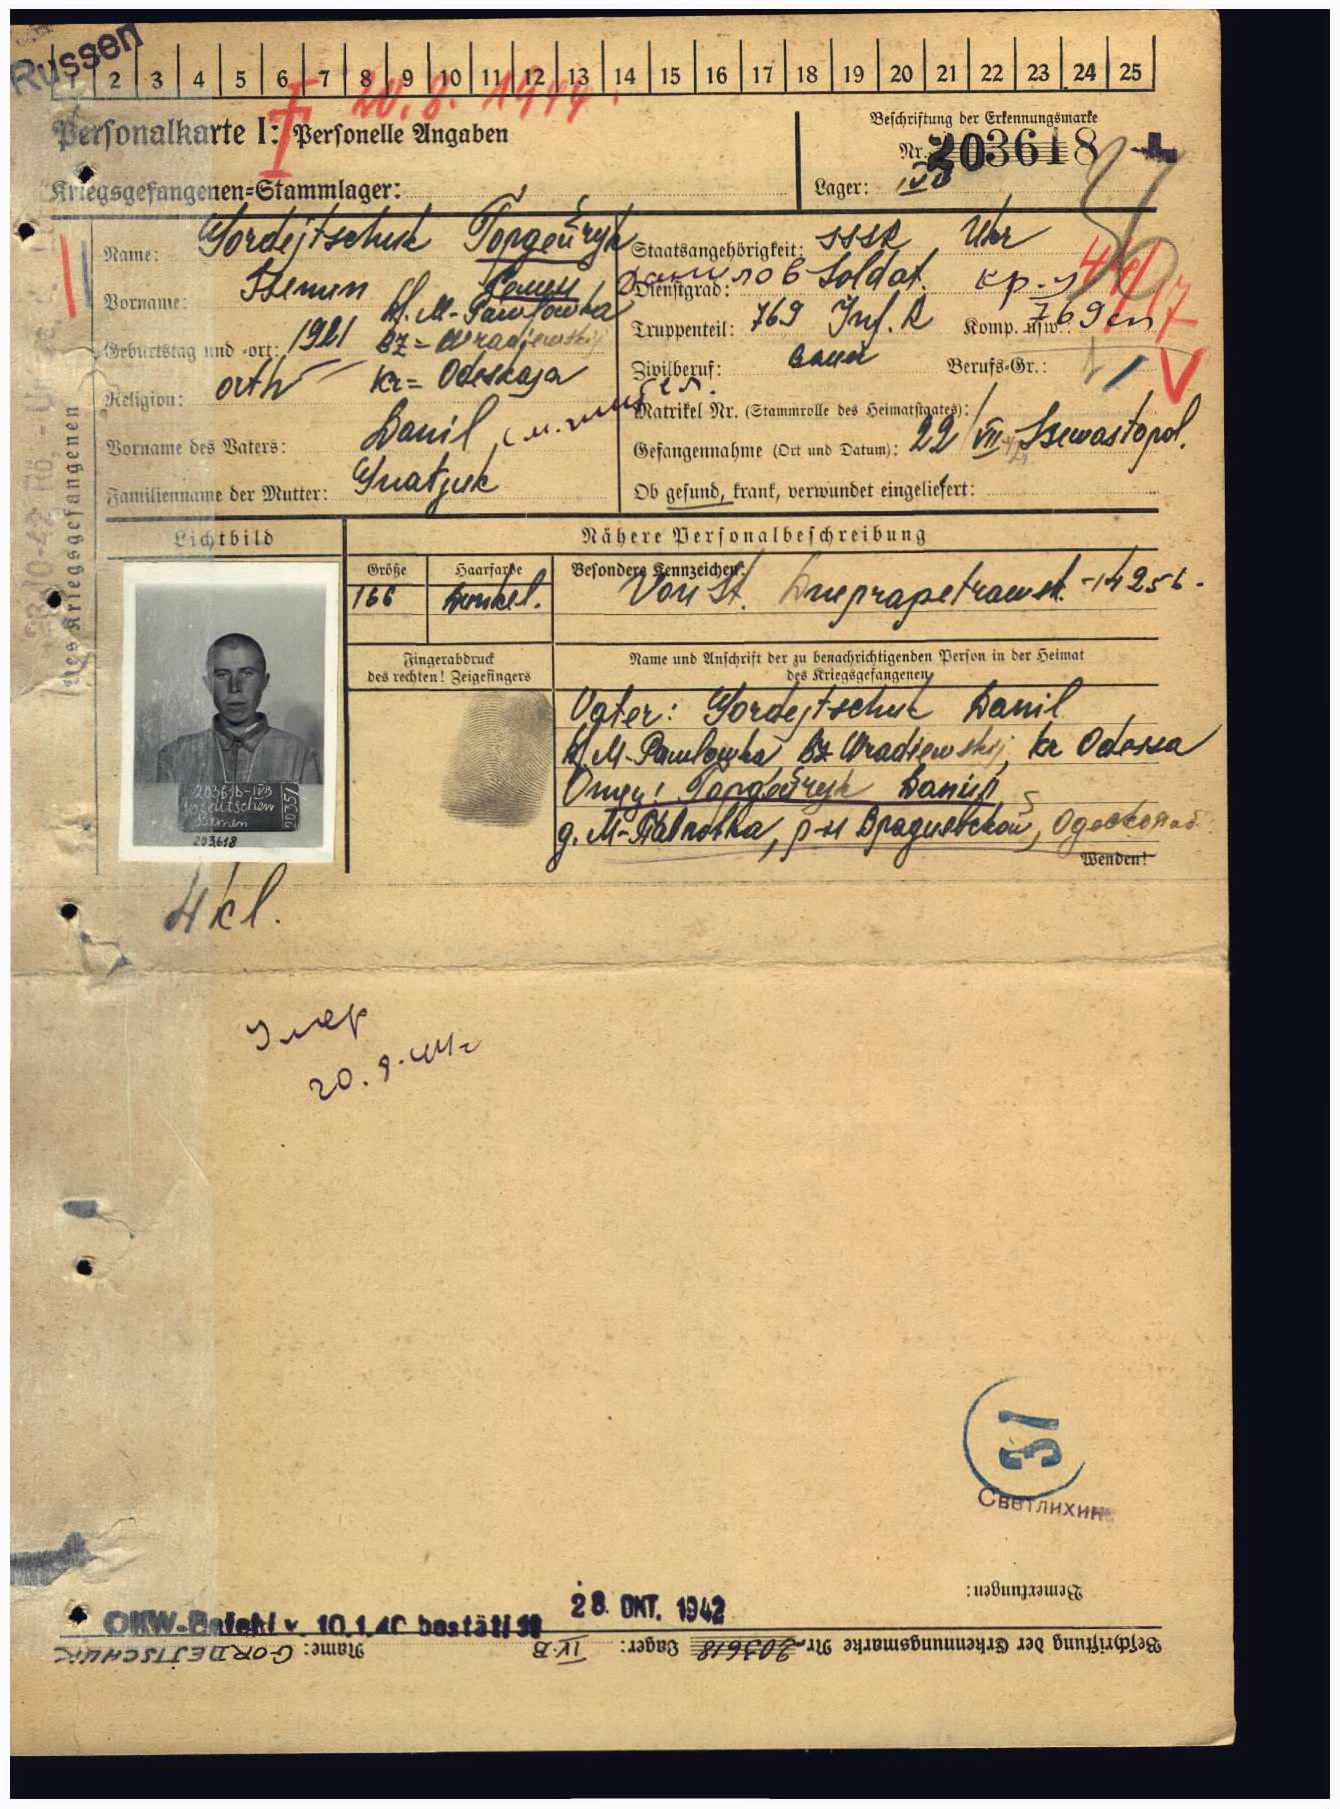 Russen
1 2 3 4 5 6 7 8 9 10 11 12 13 14 15 16 17 18 19 20 21 22 23 24 25
20.8.1944.
Personalkarte I: Personelle Angaben
Beschriftung der Erkennungsmarke
Nr. 203618
Kriegsgefangenen-Stammlager:
Lager: IVB
Name: Gordejtschuk Гордейчук
Vorname: Ssemen Семен
Данилов
Geburtstag und -ort: 1921 d. M-Pawlowka
BZ = Wradiewskij
Religion: orth Kr = Odesskaja
Vorname des Vaters: Danil
Familienname der Mutter: Gnatjuk
Staatsangehörigkeit: SSSR Ukr
Dienstgrad: Soldat. кр-ц
Truppenteil: 769 Inf. R Komp. usw.: 769 сп
Zivilberuf: Bauer Berufs-Gr.: 1
Matrikel Nr. (Stammrolle des Heimatstaates):
Gefangennahme (Ort und Datum): 22/VII Ssewastopol.
Ob gesund, krank, verwundet eingeliefert:
des Kriegsgefangenen
Lichtbild
Nähere Personalbeschreibung
Größe Haarfarbe Besondere Kennzeichen:
166 dunkel. Von St. Dnepropetrowsk -14256-
Fingerabdruck
des rechten! Zeigefingers
Name und Anschrift der zu benachrichtigenden Person in der Heimat
des Kriegsgefangenen
Vater: Gordejtschuk Danil
d. M-Pawlowka Bz Wradiewskij, Kr Odessa
Отец: Гордейчук Данил
д. М-Павловка, р-н Врадиевской, Одесской об
Wenden!
203618-IVB
203618
4 kl.
Умер
20.8.44г
31
Светлихин
Bemerkungen:
OKW-Befehl v. 10.1.40 bestätigt
28. OKT. 1942
Beschriftung der Erkennungsmarke Nr. 203618 Lager: IV B Name: GORDEJTSCHUK